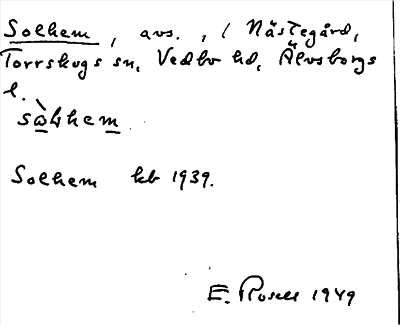 Solhem, avs., i Nästegård,
Torrskogs sn, Vedbo hd, Älvsborgs
l.
sòlhem
Solhem kb 1939.
E. Rosell 1949